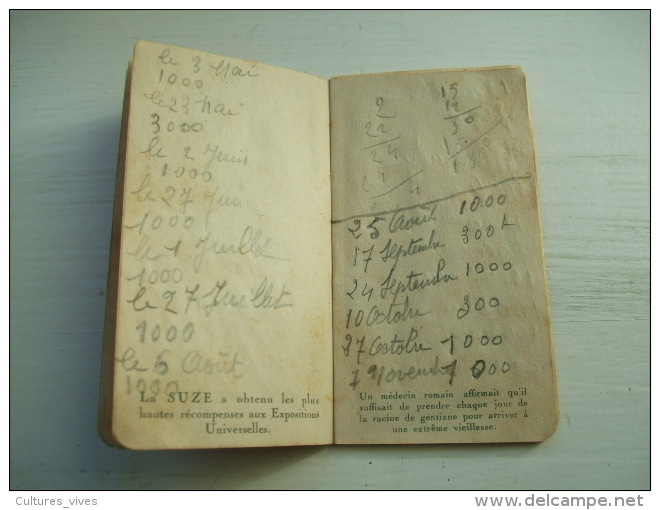 le 3 Mai
1000
le 23 Mai
3000
le 2 Juin
1000
le 27 Juin
1000
le 1 Juillet
1000
le 27 Juillet
1000
le 6 Août
1000
La SUZE a obtenu les plus
hautes récompenses aux Expositions
Universelles.
2
22
24
24
4
15
12
30
1
15
25 Août 1000
17 Septembre 300
24 Septembre 1000
10 Octobre 300
27 Octobre 1000
7 Novembre 1000
Un médecin romain affirmait qu'il
suffisait de prendre chaque jour de
la racine de gentiane pour arriver à
une extrême vieillesse.
Cultures_vives
delcampe.net